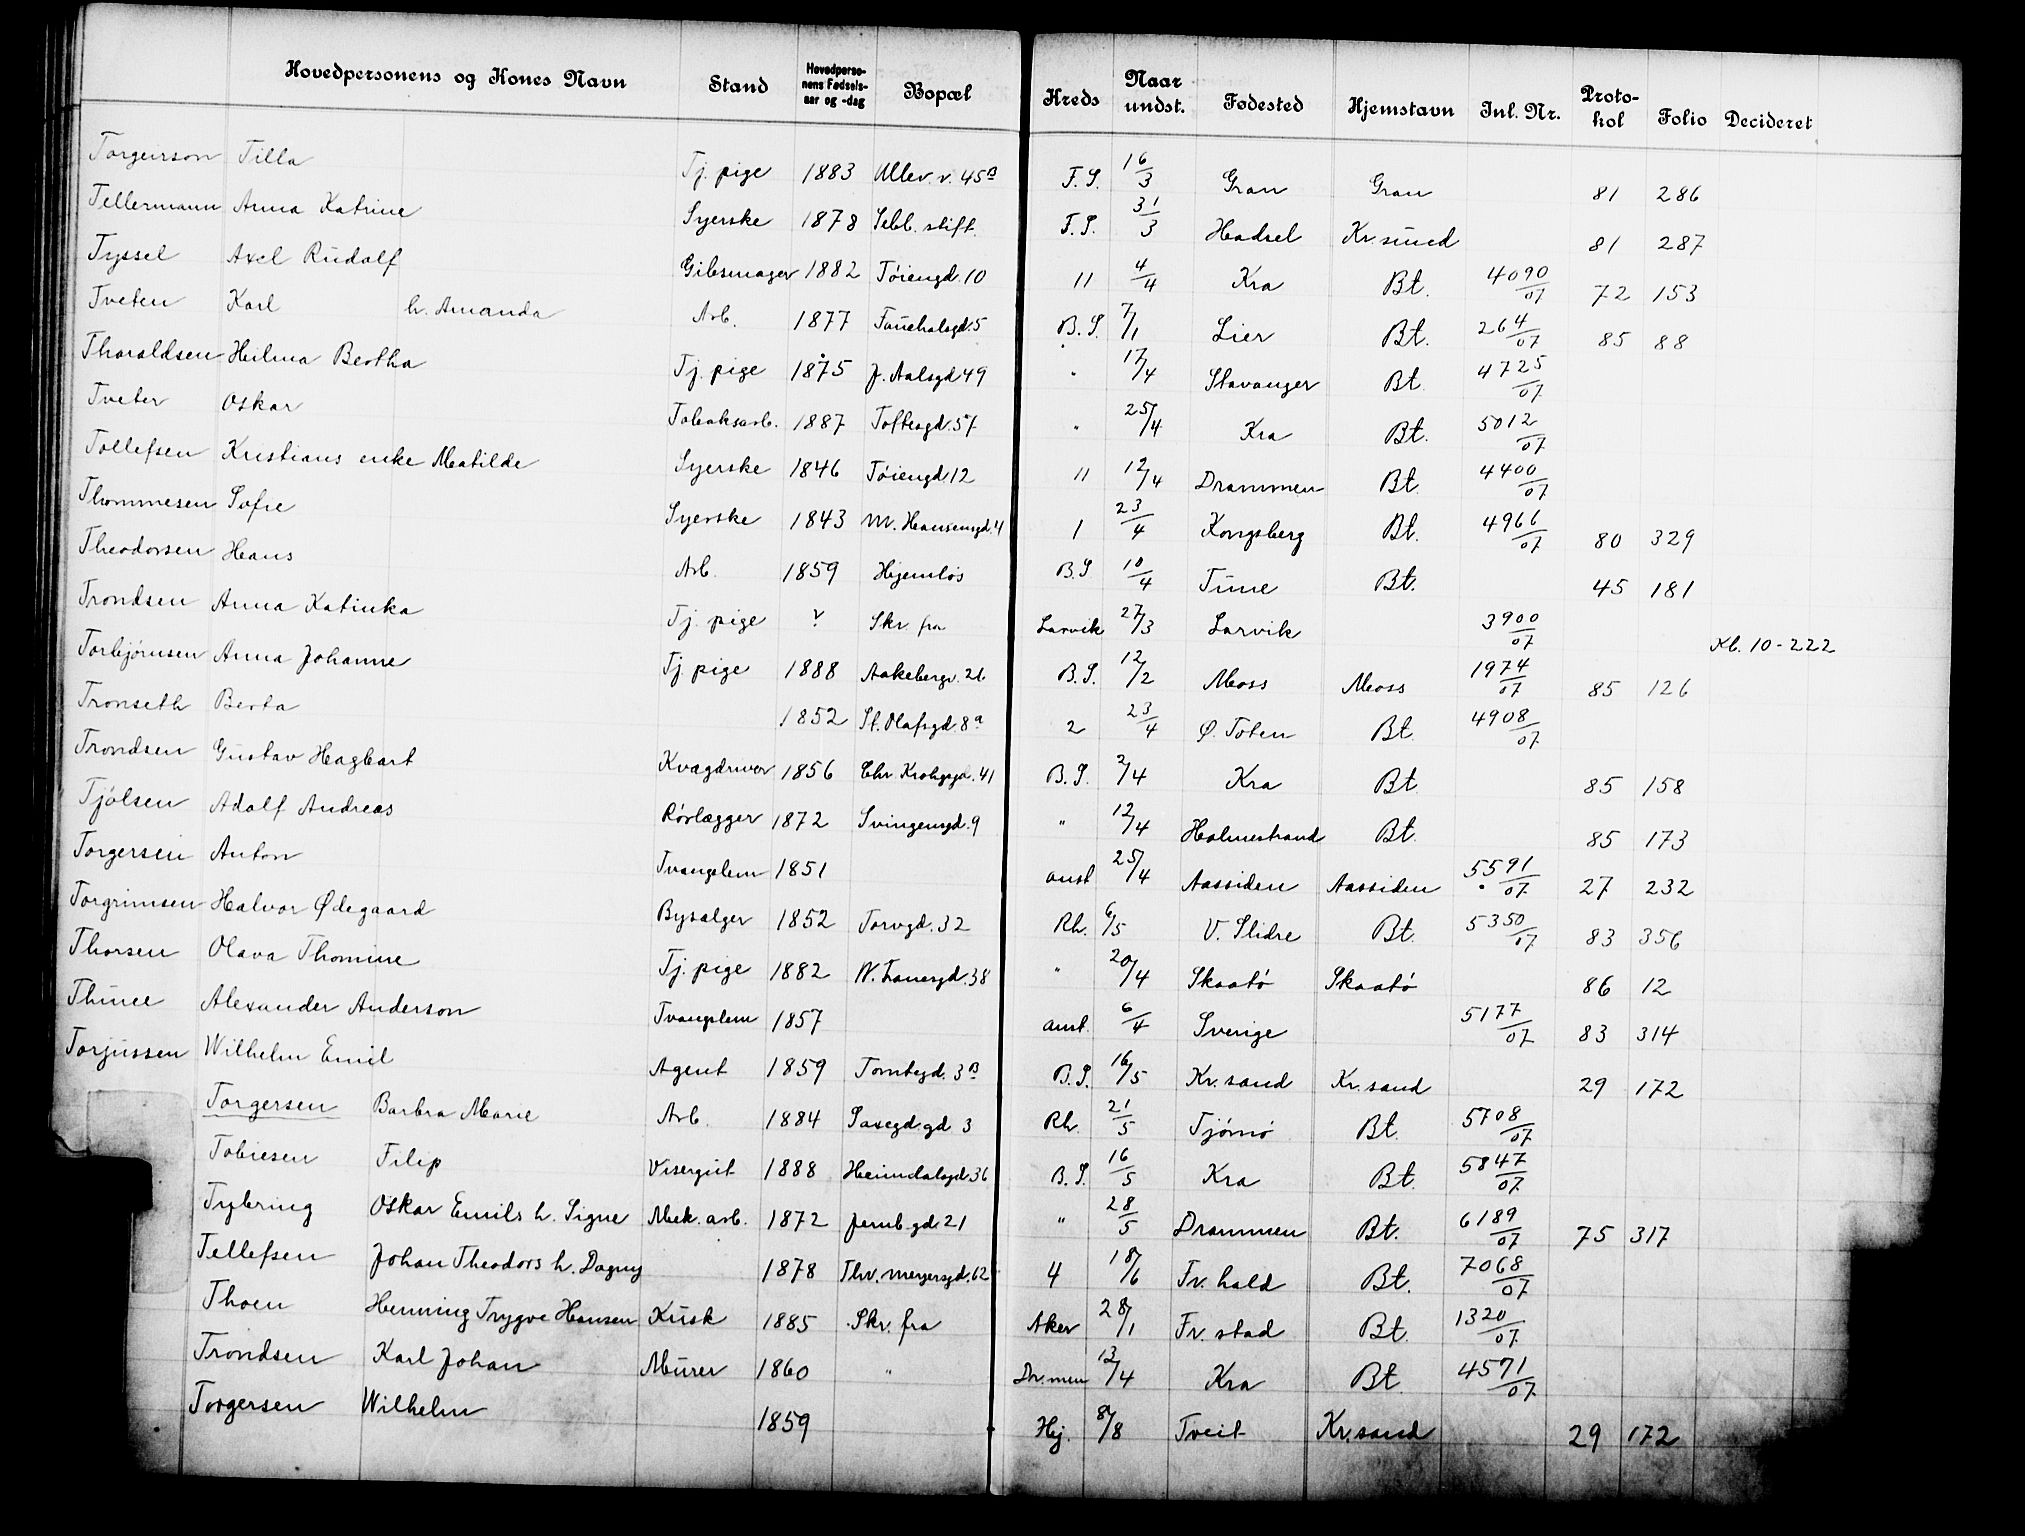 Hovedpersonens og Kones Navn Stand Hovedpersonens Fødselsaar og -dag Bopæl Kreds Naar undst. Fødested Hjemstavn Inl. Nr. Protokol Folio Decideret
Torgeirson Tilla Tj. pige 1883 Ullev. v. 45B F.S. 16/3 Gran Gran 81 286
Tellermann Anna Katrine Syerske 1878 Sebb. stift. F.S. 31/3 Hadsel Kr.sund 81 287
Tyssel Axel Rudolf Gibsmager 1882 Tøiengd. 10 11 4/4 Kra Bt. 4090/07 72 153
Tveten Karl h. Amanda Arb. 1877 Tøuchalsgd. 5 B.S. 7/1 Lier Bt. 264/07 85 88
Tharaldsen Hilma Bertha Tj. pige 1875 J. Aalsgd 49 " 17/4 Stavanger Bt. 4725/07
Tveter Oskar Tobaksarb. 1887 Toftesgd. 57 " 25/4 Kra Bt. 5012/07
Tollefsen Kristians enke Matilde Syerske 1846 Tøiengd 12 11 12/4 Drammen Bt. 4400/07
Thommesen Sofie Syerske 1843 M. Hansensgd. 4 1 23/4 Kongsberg Bt. 4966/07 80 329
Theodorsen Hans Arb. 1859 Hjemløs B.S. 10/4 Tune Bt. 45 181
Trondsen Anna Katinka Tj. pige ? Skr. fra Larvik 27/3 Larvik 3900/07 Kb. 10-222
Torbjørnsen Anna Johanne Tj. pige 1888 Aakebergv. 26 B.S. 12/2 Moss Moss 1974/07 85 126
Tronseth Berta 1852 St. Olafsgd. 8a 2 23/4 Ø. Toten Bt. 4908/07
Trondsen Gustav Hagbart Kvægdriver 1856 Chr. Krohgsgd. 41 B.S. 2/4 Kra Bt. 85 158
Tjølsen Adolf Andreas Rørlægger 1872 Svingensgd. 9 " 12/4 Holmestrand Bt. 85 173
Torgersen Anton Tvangslem 1851 anst 25/4 Aassiden Aassiden 5591/07 27 232
Torgrimsen Halvor Ødegaard Bysælger 1852 Torvgd. 32 Rh. 6/5 V. Slidre Bt. 5350/07 83 356
Thorsen Olava Thomine Tj. pige 1882 N. Tanesgd. 38 " 20/4 Skaatø Skaatø 86 12
Thuree Alexander Anderson Tvangslem 1857 anst. 6/4 Sverige 5177/07 83 314
Torjussen Wilhelm Emil Agent 1859 Tomtegd. 3B B.S. 16/5 Kr.sand Kr.sand 29 172
Torgersen Barbra Marie Arb. 1884 Saxegd. gd 3 Rh. 21/5 Tjømø Bt. 5708/07
Tobiesen Filip Visergut 1888 Heimdalsgd 36 B.S. 16/5 Kra Bt. 5847/07
Tybring Oskar Emils h. Signe Mek. arb. 1872 Jernb. gd 21 " 28/5 Drammen Bt. 6189/07 75 317
Tellefsen Johan Theodors h. Dagny 1878 Thv. Meyersgd. 62 4 18/6 Fr. hald Bt. 7068/07
Thoen Henning Trygve Hansen Kusk 1885 Skr. fra Aker 28/1 Fr. stad Bt. 1320/07
Trondsen Karl Johan Murer 1860 " Dr.men 13/4 Kra Bt. 4571/07
Torgersen Wilhelm 1859 Hj. 8/8 Tveit Kr.sand 29 172